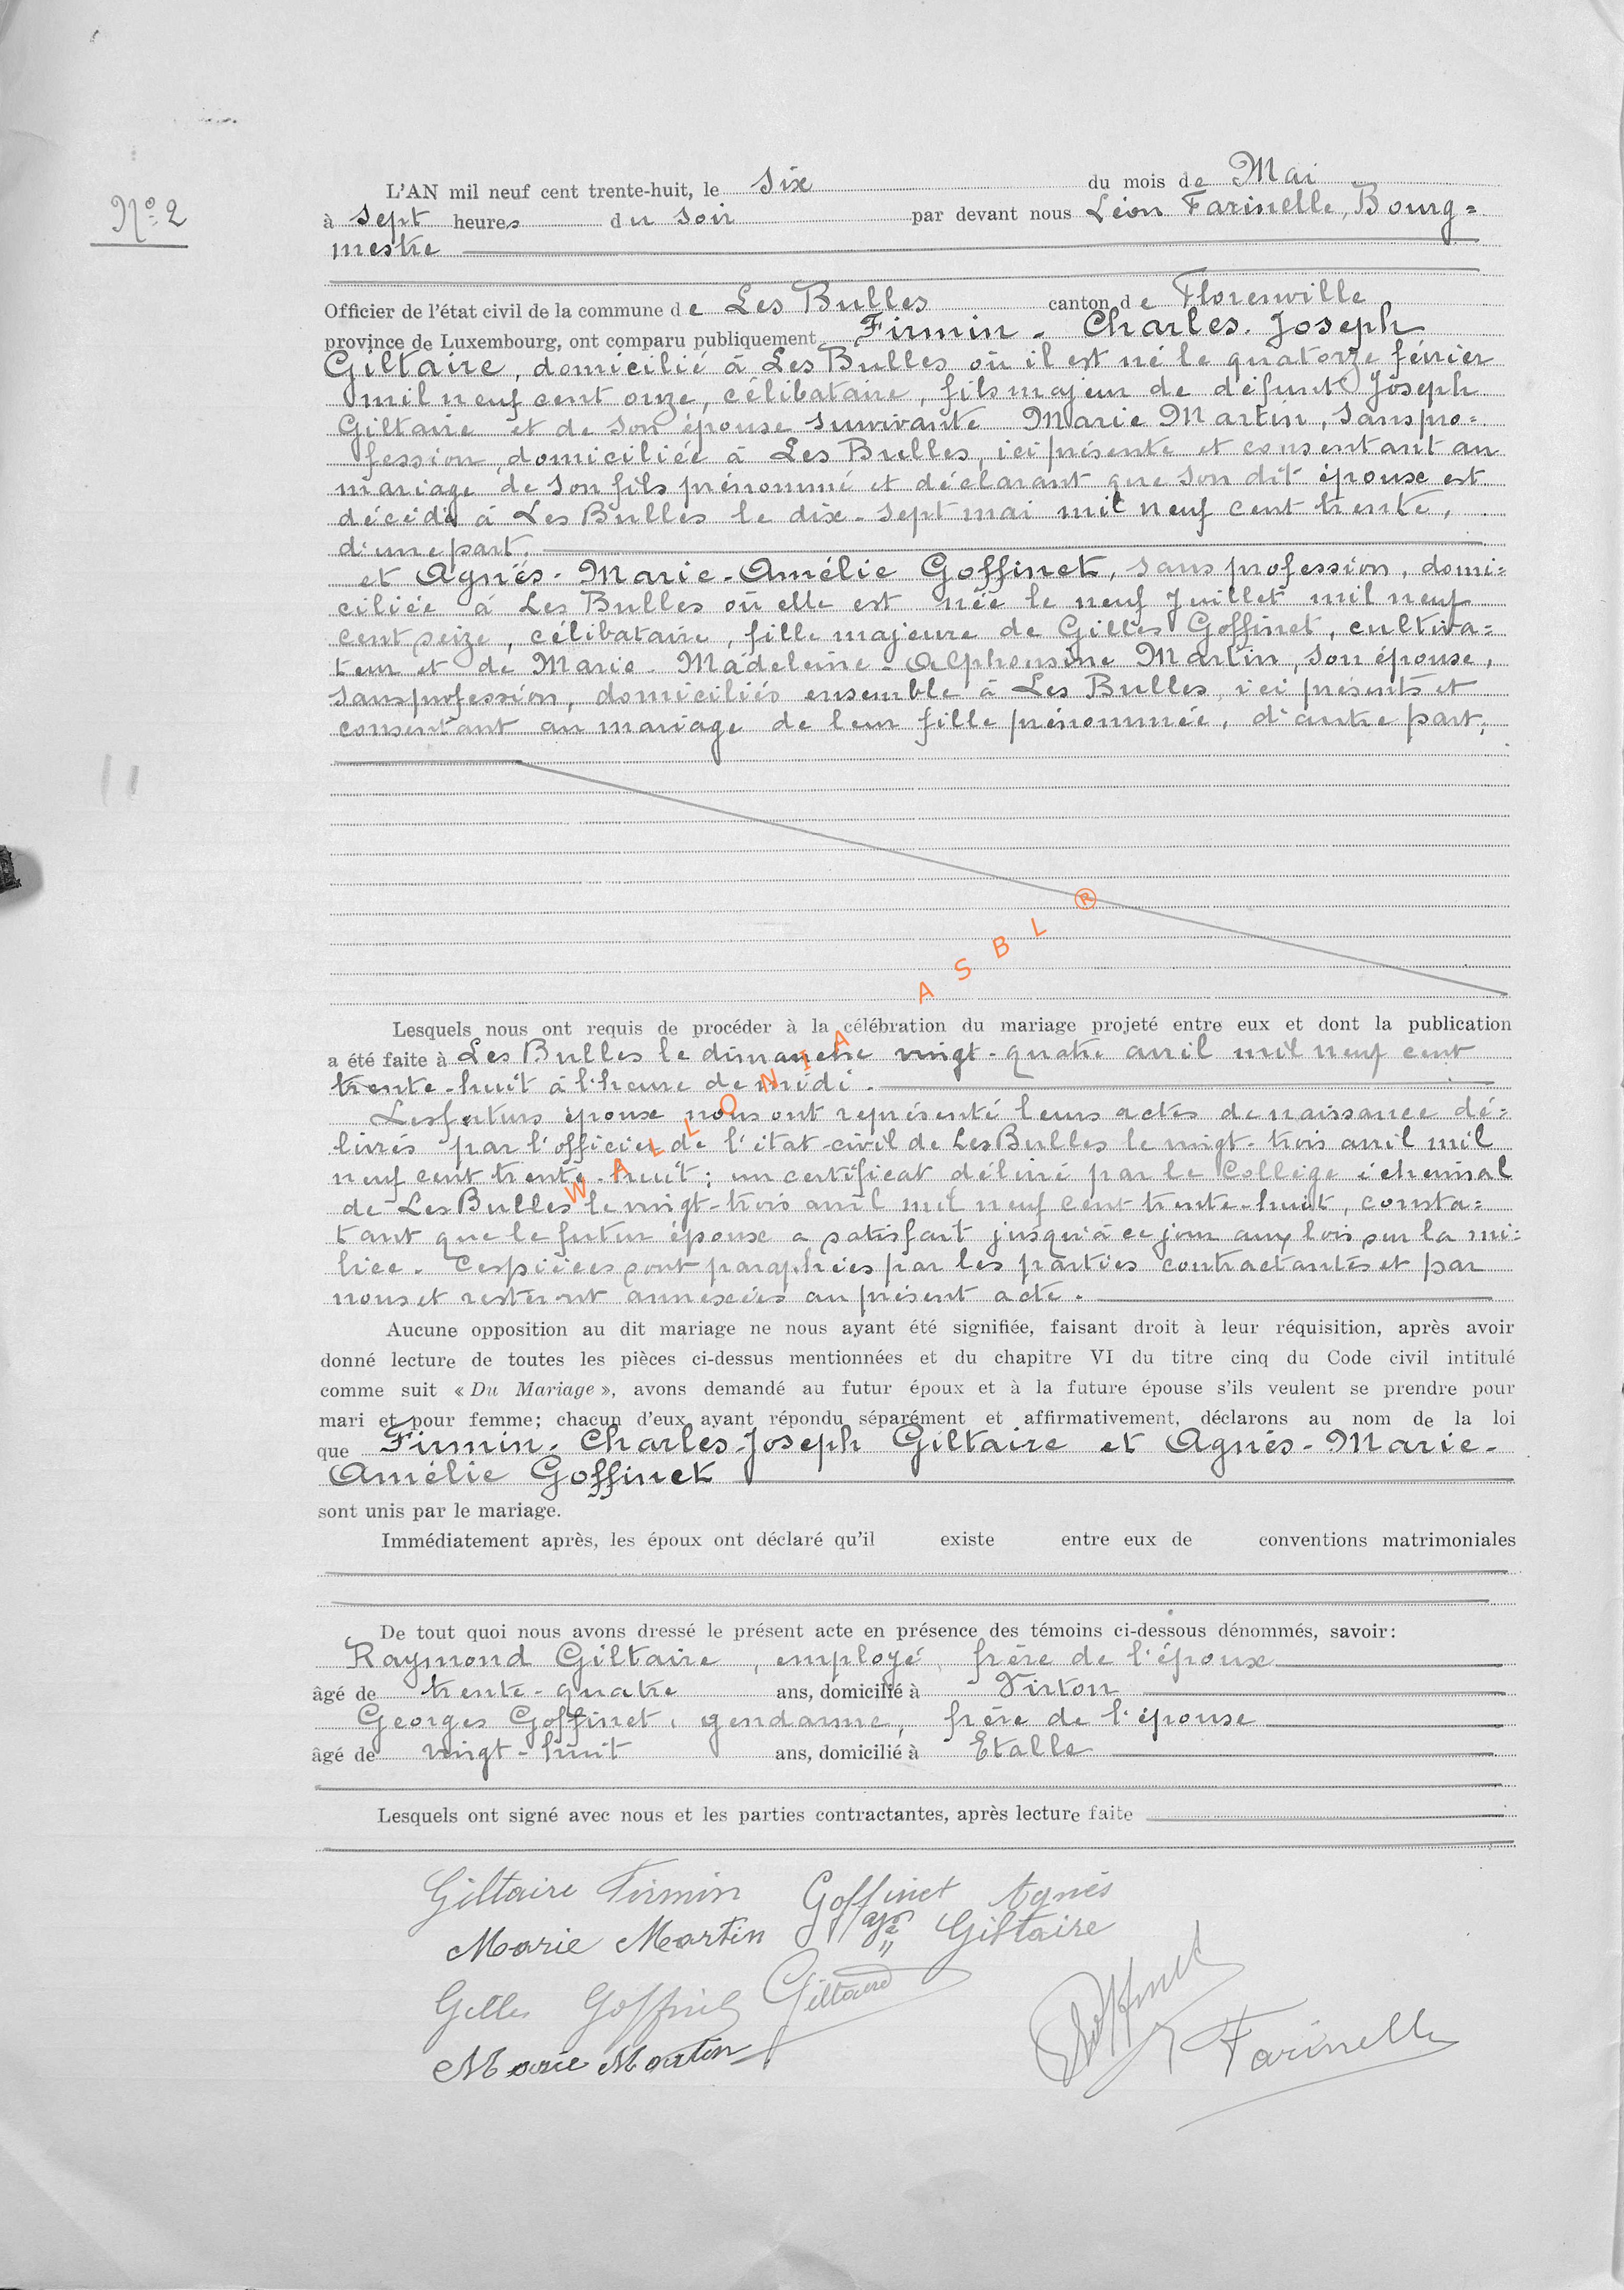 Nº 2
L'AN mil neuf cent trente-huit, le six du mois de Mai
à sept heures du soir par devant nous Léon Farinelle, Bourg=
mestre
Officier de l'état civil de la commune de Les Bulles canton de Florenville
province de Luxembourg, ont comparu publiquement Firmin - Charles - Joseph
Giltaire, domicilié à Les Bulles où il est né le quatorze février
mil neuf cent onze, célibataire, fils majeur de défunt Joseph
Giltaire et de son épouse survivante Marie Martin, sans pro=
fession, domiciliée à Les Bulles, ici présente et consentant au
mariage de son fils prénommé et déclarant que son dit époux est
décédé à Les Bulles le dix-sept mai mil neuf cent trente,
d'une part.
et Agnès - Marie - Amélie Goffinet, sans profession, domi=
ciliée à Les Bulles où elle est née le neuf juillet mil neuf
cent seize, célibataire, fille majeure de Gilles Goffinet, cultiva=
teur et de Marie - Madeleine - Alphonsine Martin, son épouse,
sans profession, domiciliés ensemble à Les Bulles, ici présents et
consentant au mariage de leur fille prénommée, d'autre part,
Lesquels nous ont requis de procéder à la célébration du mariage projeté entre eux et dont la publication
a été faite à Les Bulles le dimanche vingt-quatre avril mil neuf cent
trente-huit à l'heure de midi.
Les futurs époux nous ont représenté leurs actes de naissance dé=
livrés par l'officier de l'état-civil de Les Bulles le vingt-trois avril mil
neuf cent trente-huit; un certificat délivré par le Collège échevinal
de Les Bulles le vingt-trois avril mil neuf cent trente-huit, consta=
tant que le futur époux a satisfait jusqu'à ce jour aux lois sur la mi=
lice. Ces pièces sont paraphées par les parties contractantes et par
nous et resteront annexées au présent acte.
Aucune opposition au dit mariage ne nous ayant été signifiée, faisant droit à leur réquisition, après avoir
donné lecture de toutes les pièces ci-dessus mentionnées et du chapitre VI du titre cinq du Code civil intitulé
comme suit « Du Mariage », avons demandé au futur époux et à la future épouse s'ils veulent se prendre pour
mari et pour femme; chacun d'eux ayant répondu séparément et affirmativement, déclarons au nom de la loi
que Firmin - Charles - Joseph Giltaire et Agnès - Marie -
Amélie Goffinet
sont unis par le mariage.
Immédiatement après, les époux ont déclaré qu'il existe entre eux de conventions matrimoniales
De tout quoi nous avons dressé le présent acte en présence des témoins ci-dessous dénommés, savoir:
Raymond Giltaire, employé, frère de l'époux
âgé de trente-quatre ans, domicilié à Virton
Georges Goffinet, gendarme, frère de l'épouse
âgé de vingt-huit ans, domicilié à Etalle
Lesquels ont signé avec nous et les parties contractantes, après lecture faite
Giltaire Firmin Goffinet Agnès
Marie Martin Vve Giltaire
Gilles Goffinet Giltaire
Goffinet
Marie Martin Farinelle
WALLONIA ASBL ®